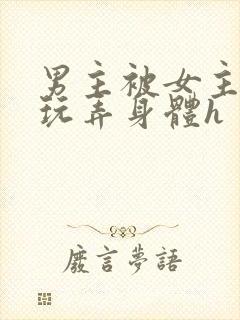 男主被女主
玩弄身體h
廢言夢語